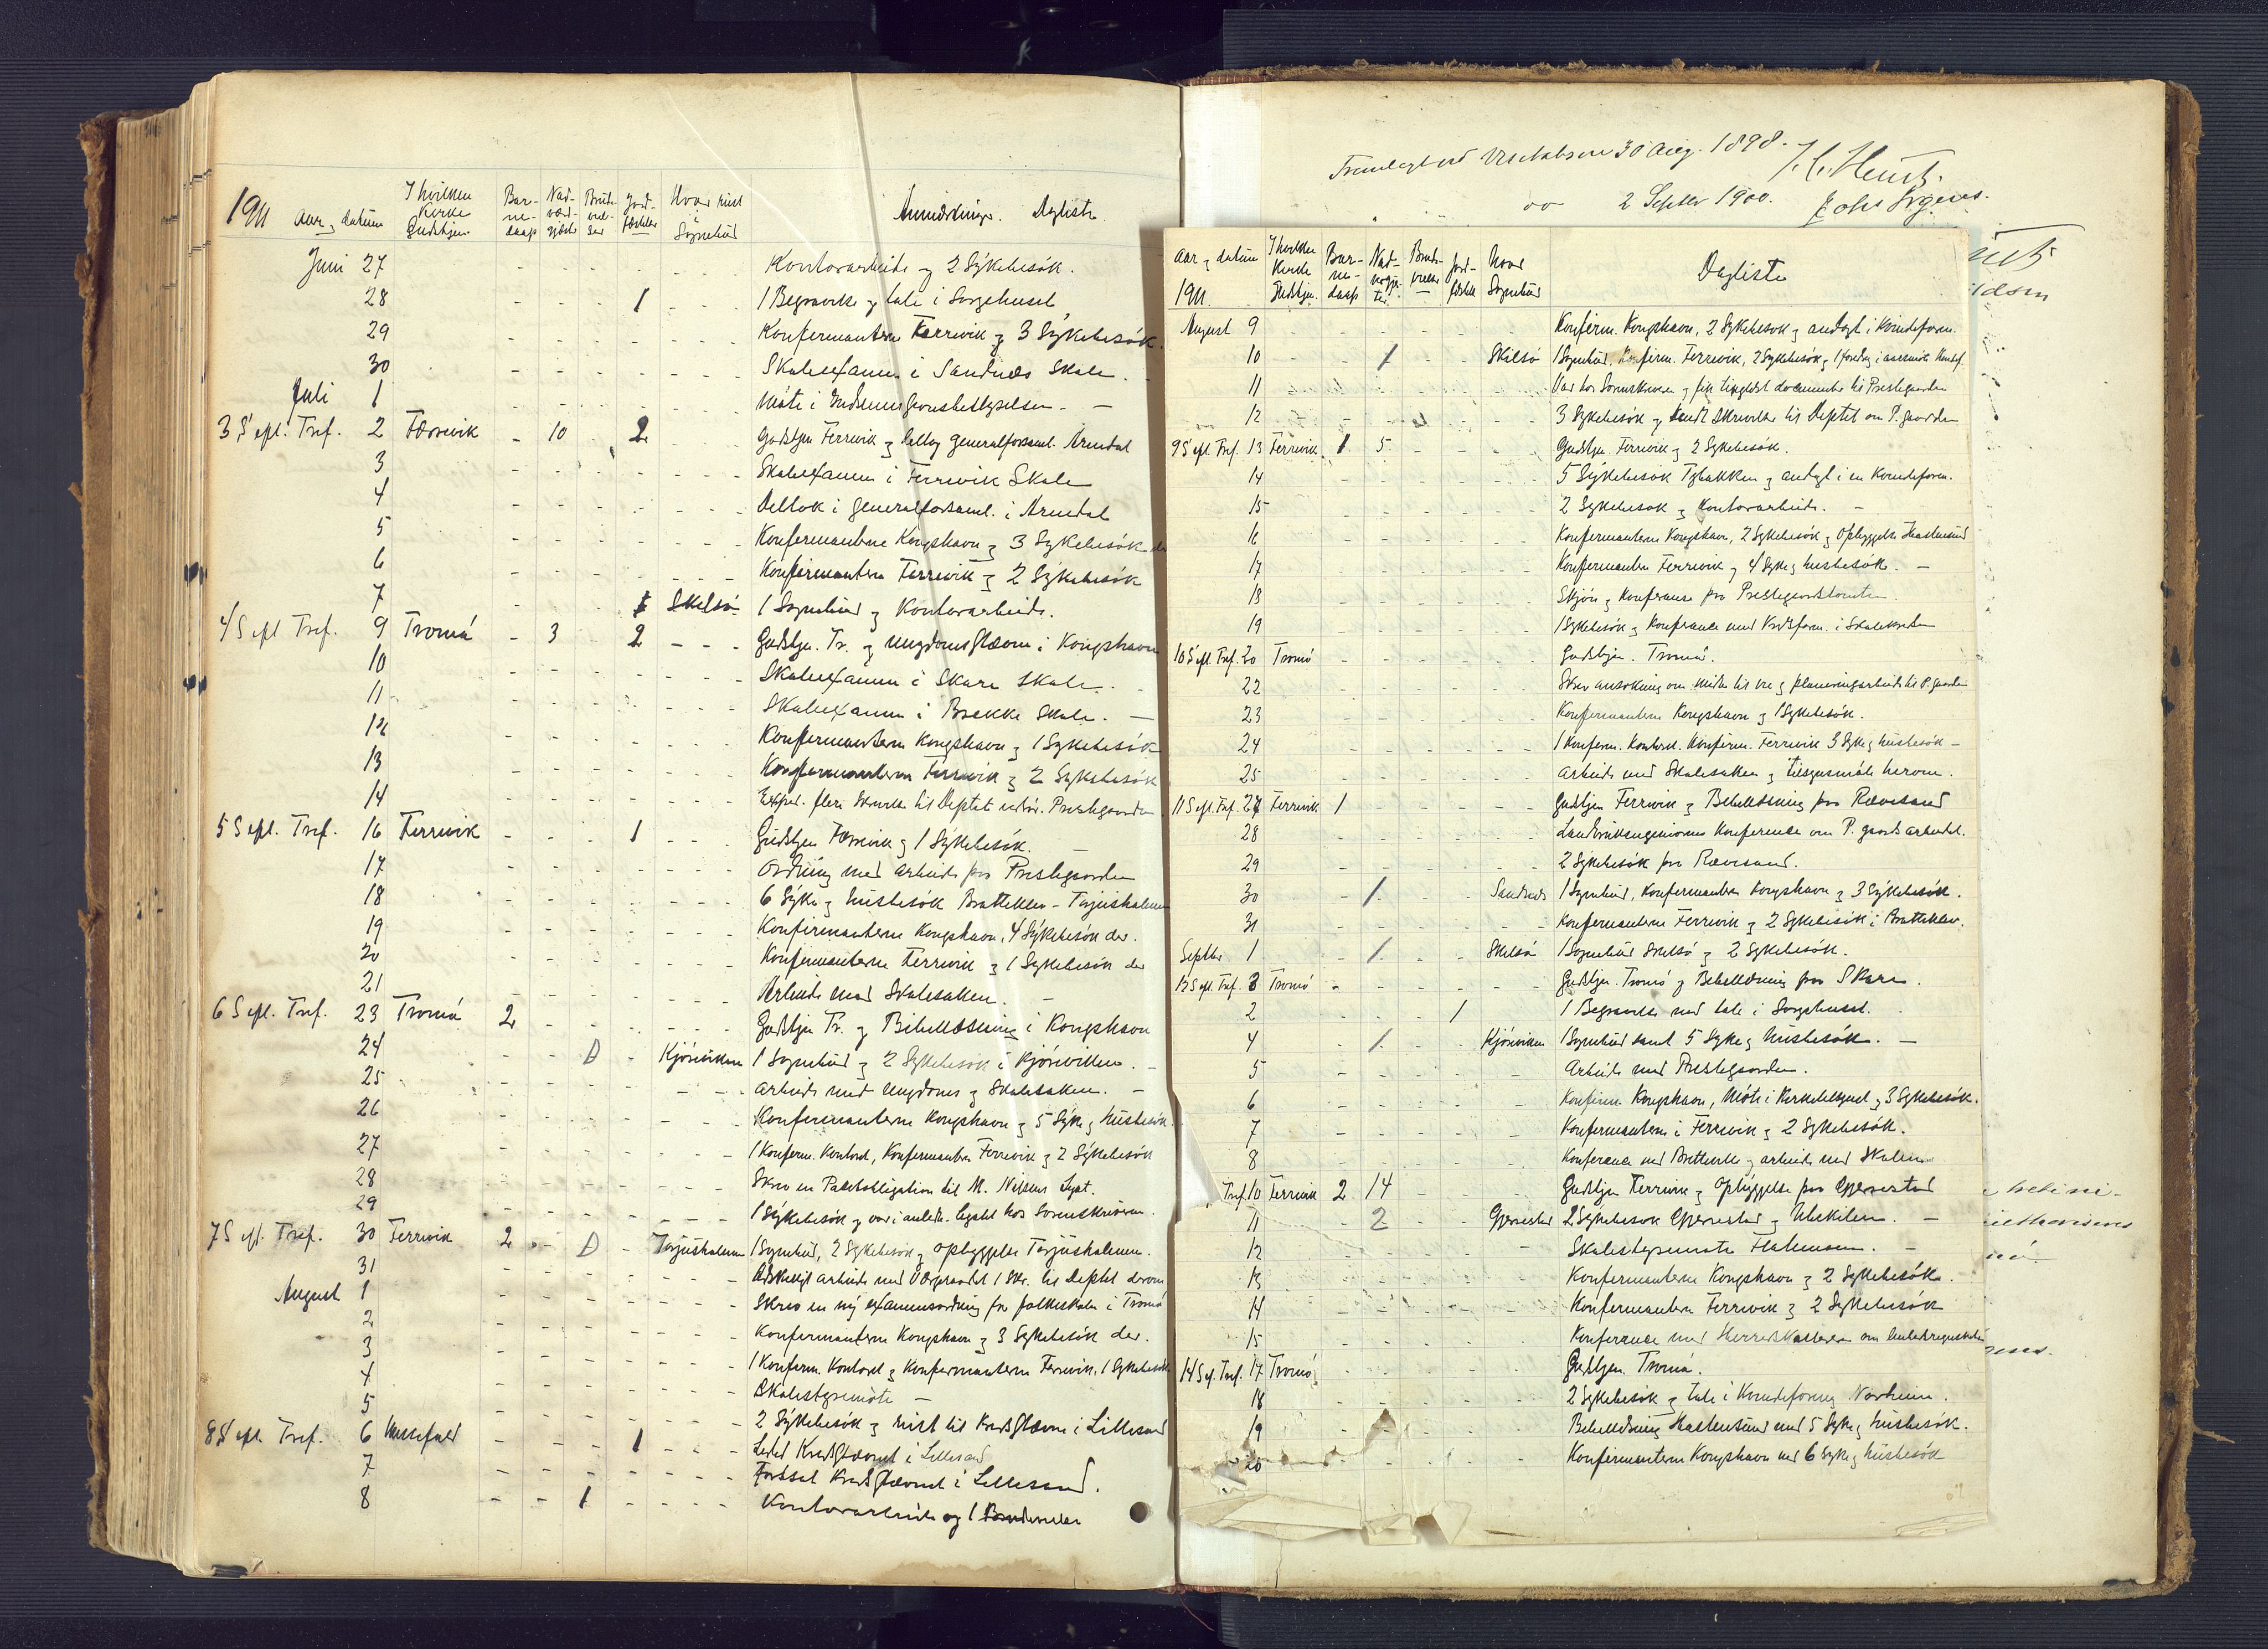 1911 Aar og datum | I hvilken Kirke Gudstjen. | Bar-ne-daap | Nad-verd-gjester | Brude-viel-ser | Jord-fæstelse | Hvor hint i Sognebud | Anmerkninger. Dagliste
Juni 27 Kontorarbeide og 2 Sykebesøk.
28 1 1 Begravelse og tale i Sorgehuset
29 Konfirmanterne Færvik og 3 Sykebesøk.
30 Skoleexamen i Sandnæs Skole.
Juli 1 Møte i Indremissionsbestyrelsen
3 S. eft. Tref. 2 Færvik 10 2 Gudstjen Færvik og deltog generalforsaml. Arendal
3 Skoleexamen i Færvik Skole
4 Deltok i generalforsaml. i Arendal
5 Konfirmanterne Kongshavn og 3 Sykebesøk der
6 Konfirmanterne Færvik og 2 Sykebesøk
7 1 Skilsø 1 Sognebud og Kontorarbeide.
4 S. eft Tref. 9 Tromø 3 2 Gudstjen. Tr. og Ungdomsstævne i Kongshavn
10 Skoleexamen i Skare Skole.
11 Skoleexamen i Brekke Skole.
12 Konfirmanterne Kongshavn og 1 Sykebesøk
13 Konfirmanterne Færvik og 2 Sykebesøk
14 Exped. flere Skrivelser til Deptet vedrør. Prestegaarden
5 S eft. Tref. 16 Færvik 1 Gudstjen Færvik og 1 Sykebesøk.
17 Ordning med arbeide paa Prestegaarden
18 6 Syke og husbesøk Bratteklev - Torjusholmen
19 Konfirmanterne Kongshavn, 4 Sykebesøk der.
20 Konfirmanterne Færvik og 1 Sykebesøk der
21 Arbeide med Skolesaken.
6 S eft. Tref. 23 Tromø 2 Gudstjen Tr. og Bibellæsning i Kongshavn
24 Kjørviken 1 Sognebud og 2 Sykebesøk i Kjørviken.
25 Arbeide med Ungdoms og Skolesaken.
26 Konfirmanterne Kongshavn og 5 Syke og husbesøk
27 1 Konferm. Kontoret, Konfirmanterne Færvik og 2 Sykebesøk
28 Skrev en Pantobligation til M. Nielsens Legat.
29 1 Sykebesøk og var i anledn. legatet hos Sorenskriveren.
7 S eft. Tref. 30 Færvik 2 Torjusholmen 1 Sognebud, 2 Sykebesøk og Opbyggelse Torjusholmen.
31 Adskilligt arbeide med Værgeraadet 1 Skr. til Deptet derom
August 1 Skrev en ny examensordning for folkeskolen i Tromø
2 Konfirmanterne Kongshavn og 3 Sykebesøk der.
3 1 Konferm. Kontoret og Konfirmanterne Færvik, 1 Sykebesøk
4 Skolestyremøte
5 2 Sykebesøk og reist til Kredsstævne i Lillesand
8 S eft. Tref. 6 1 Ledet Kredsstævnet i Lillesand
7 Fortsat Kredsstævnet i Lillesand.
8 1 Kontorarbeide og 1 Brudevielse
2 Septbr 1900.
Aar og datum 1911 | I hvilken Kirke Gudstjen. | Bar-ne-daap | Nad-vergje-ster | Brude-vielser | Jord-fæstelse | Hvor Sognebud | Dagliste
August 9 Konfirm. Kongshavn, 2 Sykebesøk og andagt i Kvindeforen.
10 1 Skilsø 1 Sognebud, Konfirm. Færvik, 2 Sykebesøk
11 Var hos Sorenskriveren og fik tinglyst documenter til Prestegaarden
12 3 Sykebesøk og sendt skrivelse til Deptet om P. gaarden
9 S eft. Tref. 13 Færvik 1 5 Gudstjen. Færvik og 2 Sykebesøk.
14 5 Sykebesøk Tybakken og andagt i en Kvindeforen.
15 2 Sykebesøk og Kontorarbeide.
16 Konfirmanterne Kongshavn, 2 Sykebesøk og Opbyggelse Hastensund
17 Konfirmanterne Færvik og 4 Syke og husbesøk.
18 Skjøn og Konferanse paa Prestegaardstomten
19 1 Sykebesøk og Konferance med Kredsform. i Skolekredsen
10 S. eft. Tref. 20 Tromø Gudstjen. Tromø.
22 Skrev ansøkning om midler til vei og planeringsarbeide til P. gaarden
23 Konfirmanterne Kongshavn og 1 Sykebesøk.
24 1 Konferm. Kontoret. Konfirm. Færvik 3 Syke og husbesøk
25 Arbeide med Skolesaken og tilsynsmøte herom.
11 S eft. Tref. 27 Færvik 1 Gudstjen Færvik og Bibellæsning paa Rævesand
28 Landbruksingeniøren Konferance om P. gaards arbeidet.
29 2 Sykebesøk paa Rævesand.
30 1 Sandnes 1 Sognebud, Konfirmanterne Kongshavn og 3 Sykebesøk.
31 Konfirmanterne Færvik og 2 Sykebesøk i Bratteklev.
Septbr 1 1 Skilsø 1 Sognebud Skilsø og 2 Sykebesøk.
12 S eft. Tref. 3 Tromø Gudstjen. Tromø og Bibellæsning paa Skare.
2 1 1 Begravelse med tale i Sorgehuset.
4 1 Kjørviken 1 Sognebud samt 5 Syke og husbesøk.
5 Arbeide med Prestegaarden.
6 Konfirm. Kongshavn, Møte i Kirketilsynet og 3 Sykebesøk.
7 Konfirmanterne i Færvik og 2 Sykebesøk.
8 Konferance med Bratteklev og arbeide med Skolen
Tref. 10 Færvik 2 14 Gudstjen Færvik og Opbyggelse paa Gjervestad
11 2 Gjervestad 2 Sykebesøk Gjervestad og Ubekilen.
12 Skolestyremøte
13 Konfirmanterne Kongshavn og 2 Sykebesøk.
14 Konfirmanterne Færvik og 2 Sykebesøk
15 Konferance med Herredskassereren om
14 S. eft. Tref. 17 Tromø Gudstjen. Tromø.
18 2 Sykebesøk og tale i Kvindeforening Norheim.
19 Bibellæsning Hastensund med 5 Syke og husbesøk.
20 Konfirmanterne Kongshavn med 6 Syke og husbesøk